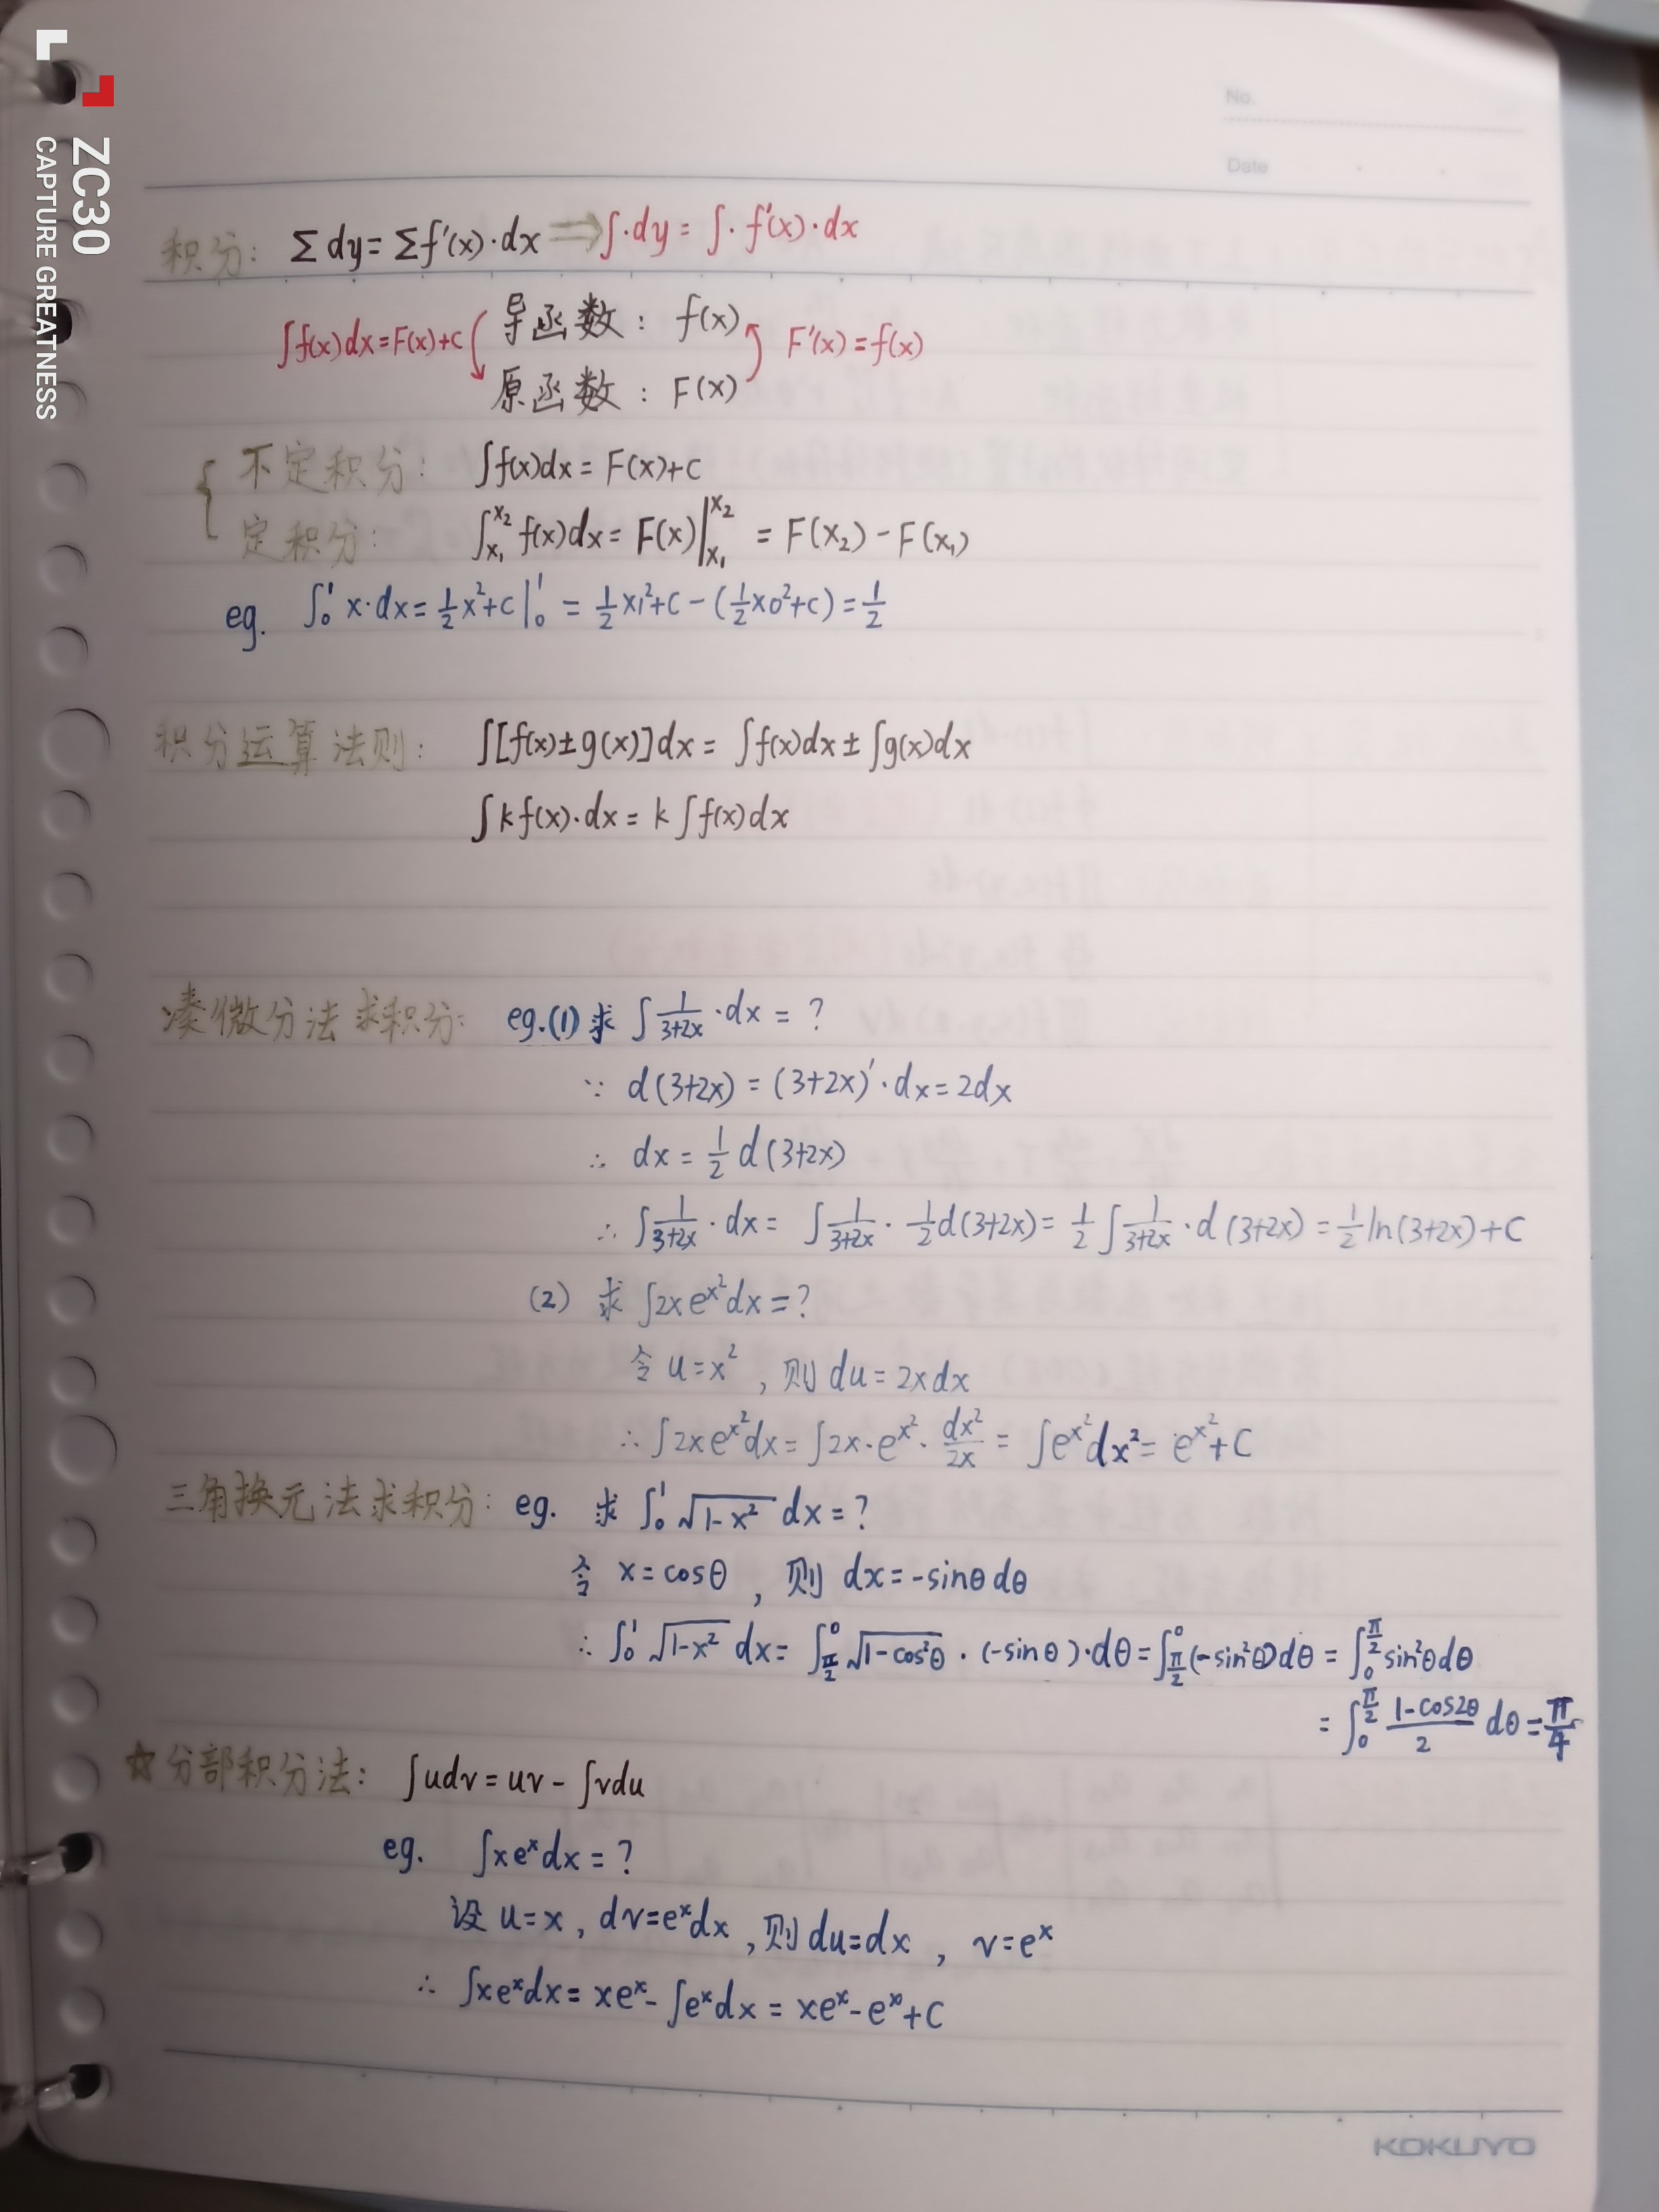 ZC30
CAPTURE GREATNESS
No.
Date
积分: Σ dy = Σ f'(x)·dx ⇒ ∫·dy = ∫·f'(x)·dx
导函数: f(x)
∫f(x)dx = F(x)+C F'(x) = f(x)
原函数: F(x)
不定积分: ∫f(x)dx = F(x)+C
定积分: ∫_{x₁}^{x₂} f(x)dx = F(x)|_{x₁}^{x₂} = F(x₂) - F(x₁)
eg. ∫₀¹ x·dx = ½x²+C|₀¹ = ½×1²+C - (½×0²+C) = ½
积分运算法则: ∫[f(x)±g(x)]dx = ∫f(x)dx ± ∫g(x)dx
∫kf(x)·dx = k∫f(x)dx
凑微分法求积分: eg.(1) 求 ∫ 1/(3+2x) ·dx = ?
∵ d(3+2x) = (3+2x)'·dx = 2dx
∴ dx = ½ d(3+2x)
∴ ∫ 1/(3+2x) · dx = ∫ 1/(3+2x) · ½d(3+2x) = ½ ∫ 1/(3+2x) · d(3+2x) = ½ ln(3+2x)+C
(2) 求 ∫2xe^{x²}dx = ?
令 u=x², 则 du = 2xdx
∴ ∫2xe^{x²}dx = ∫2x·e^{x²}· dx²/2x = ∫e^{x²}dx² = e^{x²}+C
三角换元法求积分: eg. 求 ∫₀¹ √(1-x²) dx = ?
令 x = cosθ, 则 dx = -sinθdθ
∴ ∫₀¹ √(1-x²) dx = ∫_{π/2}^{0} √(1-cos²θ) · (-sinθ)·dθ = ∫_{π/2}^{0} (-sin²θ)dθ = ∫_{0}^{π/2} sin²θdθ
= ∫_{0}^{π/2} (1-cos2θ)/2 dθ = π/4
☆分部积分法: ∫udv = uv - ∫vdu
eg. ∫xe^x dx = ?
设 u=x, dv=e^x dx, 则 du=dx, v=e^x
∴ ∫xe^x dx = xe^x - ∫e^x dx = xe^x - e^x + C
KOKUYO